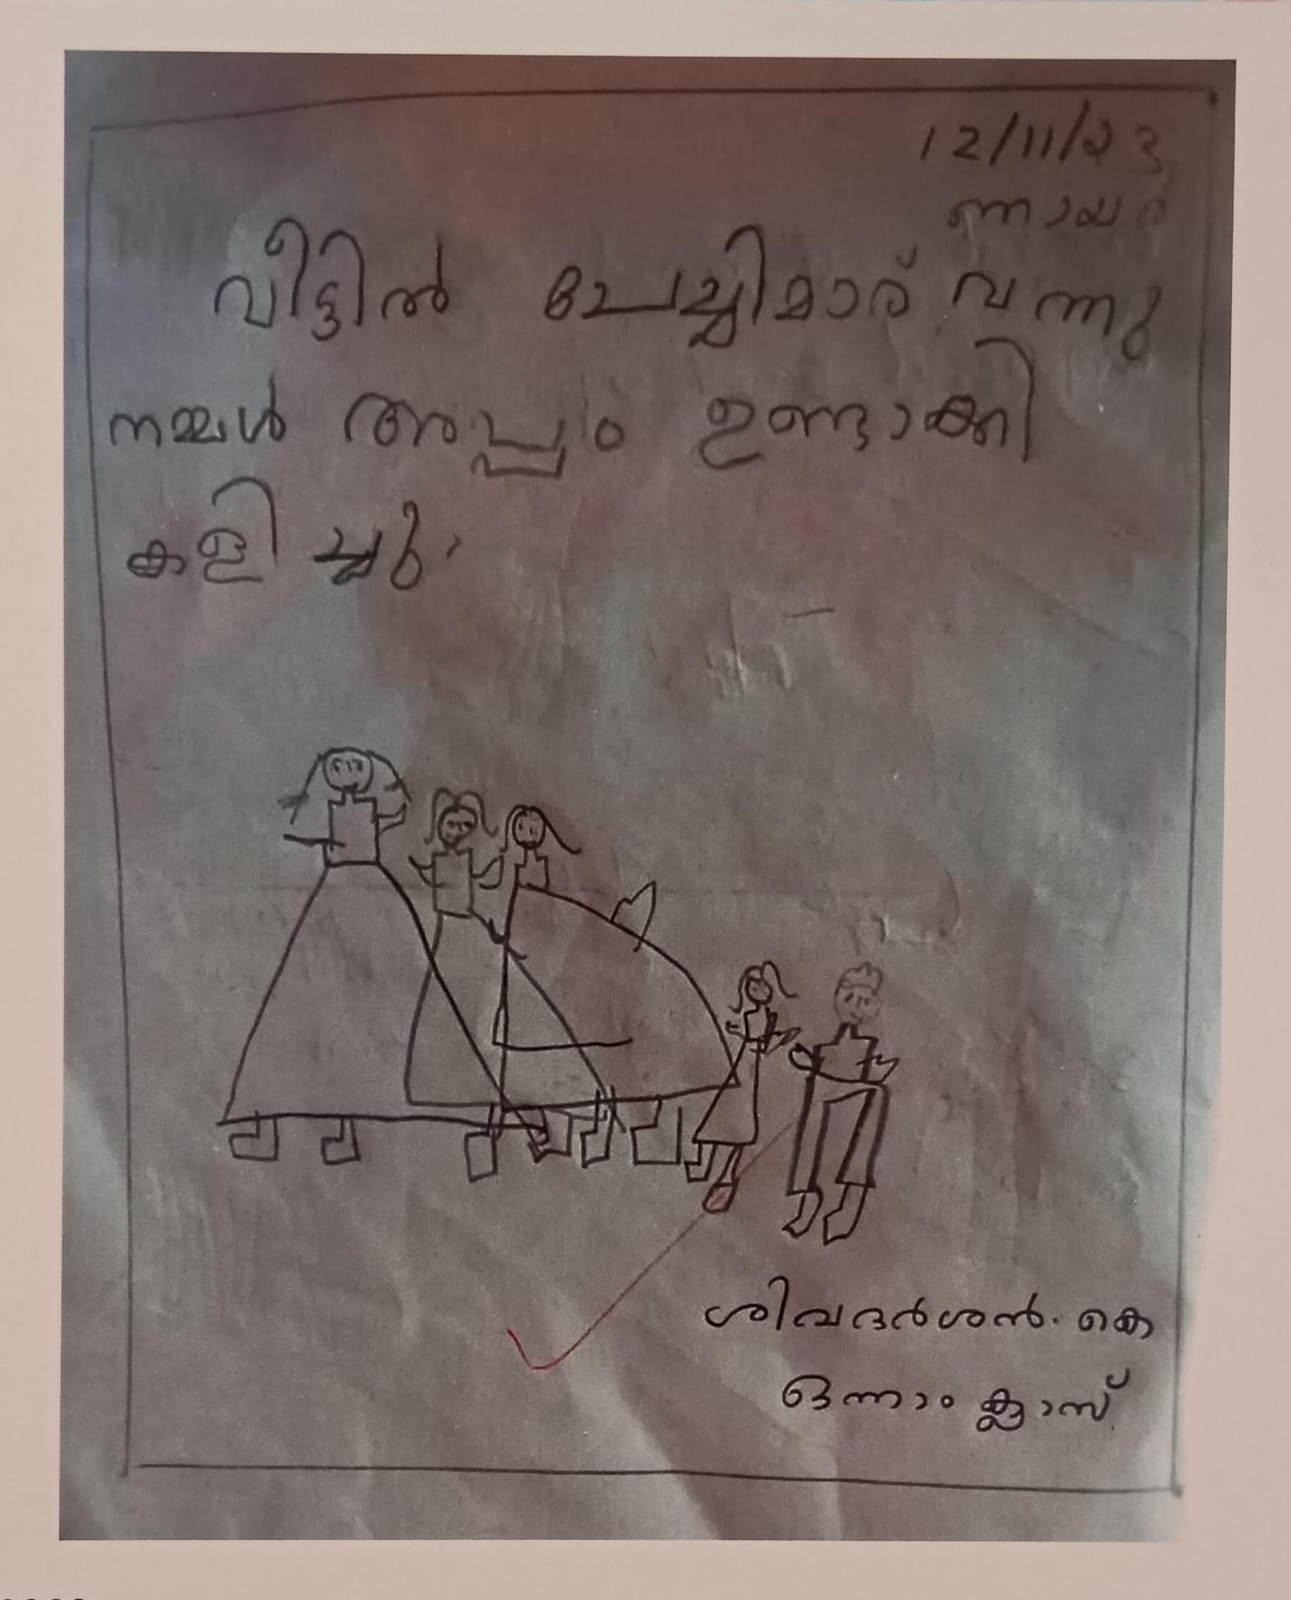 12/11/23
ഞായർ
വീട്ടിൽ ചേച്ചിമാര് വന്നു
നമ്മൾ അപ്പം ഉണ്ടാക്കി
കളിച്ചു.
ശിവദർശൻ. കെ
ഒന്നാം ക്ലാസ്